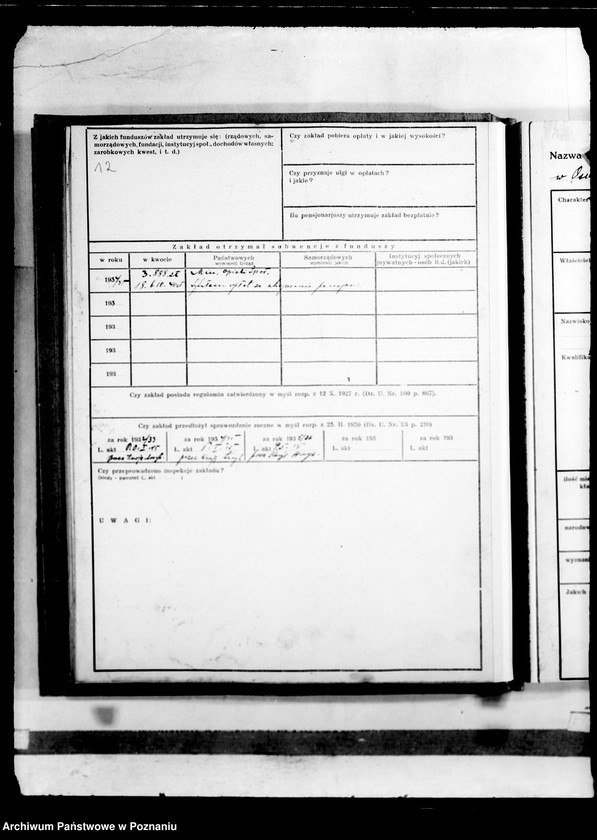 Z jakich funduszów zakład utrzymuje się: (rządowych, sa-
morządowych, fundacji, instytucyj społ., dochodów własnych:
zarobkowych kwest, i t. d.)
12
Czy zakład pobiera opłaty i w jakiej wysokości?
Czy przyznaje ulgi w opłatach?
i jakie?
Ilu pensjonarjuszy utrzymuje zakład bezpłatnie?
Zakład otrzymał subwencje z funduszy
w roku
w kwocie
Państwowych
wymienić Urząd
Samorządowych
wymienić jakich
Instytucyj społecznych
prywatnych - osób it.d. (jakich)
193
3.888 zł
Min. Opieki Społ.
193
193
193
193
Czy zakład posiada regulamin zatwierdzony w myśl rozp. z 12 X. 1927 r. (Dz. U. Nr. 100 p. 867).
Czy zakład przedłożył sprawozdanie roczne w myśl rozp. z 25. II. 1930 (Dz. U. Nr. 23 p. 210)
za rok 1932/33
za rok 193
za rok 193
za rok 193
za rok 193
L. akt
L. akt
L. akt
L. akt
L. akt
Czy przeprowadzono inspekcje zakładu?
(kiedy - powołać L. akt)
UWAGI:
Nazwa
w
Charakter
Właściciel
Nazwisko
Kwalifika
ilość mie
narodow
wyznan
Jakich
Archiwum Państwowe w Poznaniu